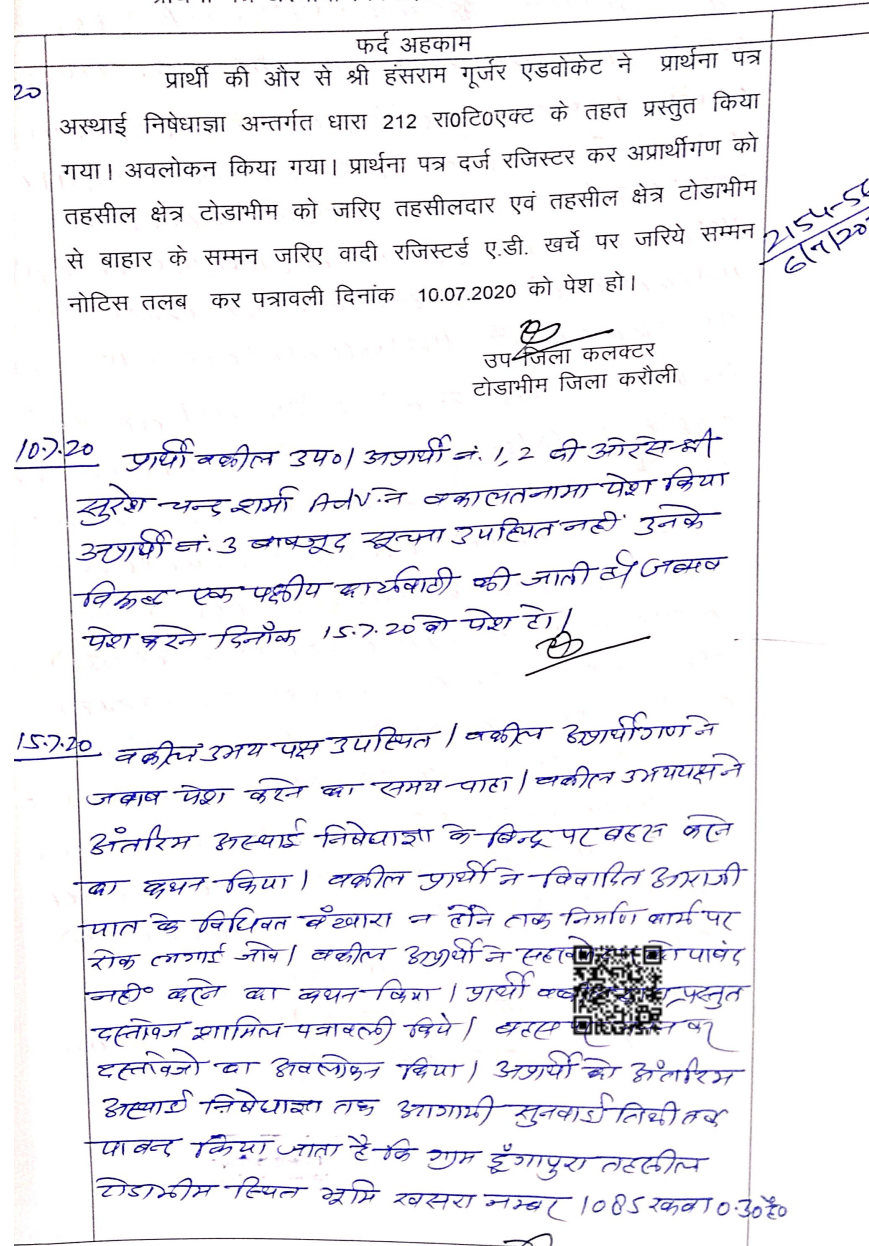 फर्द अहकाम
20
प्रार्थी की और से श्री हंसराम गूर्जर एडवोकेट ने प्रार्थना पत्र
अस्थाई निषेधाज्ञा अन्तर्गत धारा 212 रा0टि0एक्ट के तहत प्रस्तुत किया
गया। अवलोकन किया गया। प्रार्थना पत्र दर्ज रजिस्टर कर अप्रार्थीगण को
तहसील क्षेत्र टोडाभीम को जरिए तहसीलदार एवं तहसील क्षेत्र टोडाभीम
से बाहार के सम्मन जरिए वादी रजिस्टर्ड ए.डी. खर्चे पर जरिये सम्मन
नोटिस तलब कर पत्रावली दिनांक 10.07.2020 को पेश हो।
2154-56
6/7/20
उप जिला कलक्टर
टोडाभीम जिला करौली
10.7.20 प्रार्थी वकील उप०। अप्रार्थी नं. 1, 2 की ओर से श्री
सुरेश चन्द शर्मा Adv. ने वकालतनामा पेश किया
अप्रार्थी नं. 3 बावजूद सूचना उपस्थित नहीं उनके
विरूद्ध एक पक्षीय कार्यवाही की जाती है। जबाव
पेश करने दिनाँक 15.7.20 को पेश हो।
15.7.20 वकील उभय पक्ष उपस्थित। वकील अप्रार्थीगण ने
जबाब पेश करने का समय चाहा। वकील उभयपक्ष ने
अंतरिम अस्थाई निषेधाज्ञा के बिन्दु पर बहस करने
का कथन किया। वकील प्रार्थी ने विवादित आराजी
के विधिवत बँटवारा न होने तक निर्माण कार्य पर
रोक लगाई जावे। वकील अप्रार्थी ने पाबंद
नहीं करने का कथन किया। प्रार्थी प्रस्तुत
दस्तावेज शामिल पत्रावली किये। बहस कर
दस्तावेजों का अवलोकन किया। अप्रार्थी को अंतरिम
अस्थाई निषेधाज्ञा तक आगामी सुनवाई तिथी तक
पाबन्द किया जाता है कि ग्राम डूँगापुरा तहसील
टोडाभीम स्थित भूमि खसरा नम्बर 1085 रकवा 0.30 है०